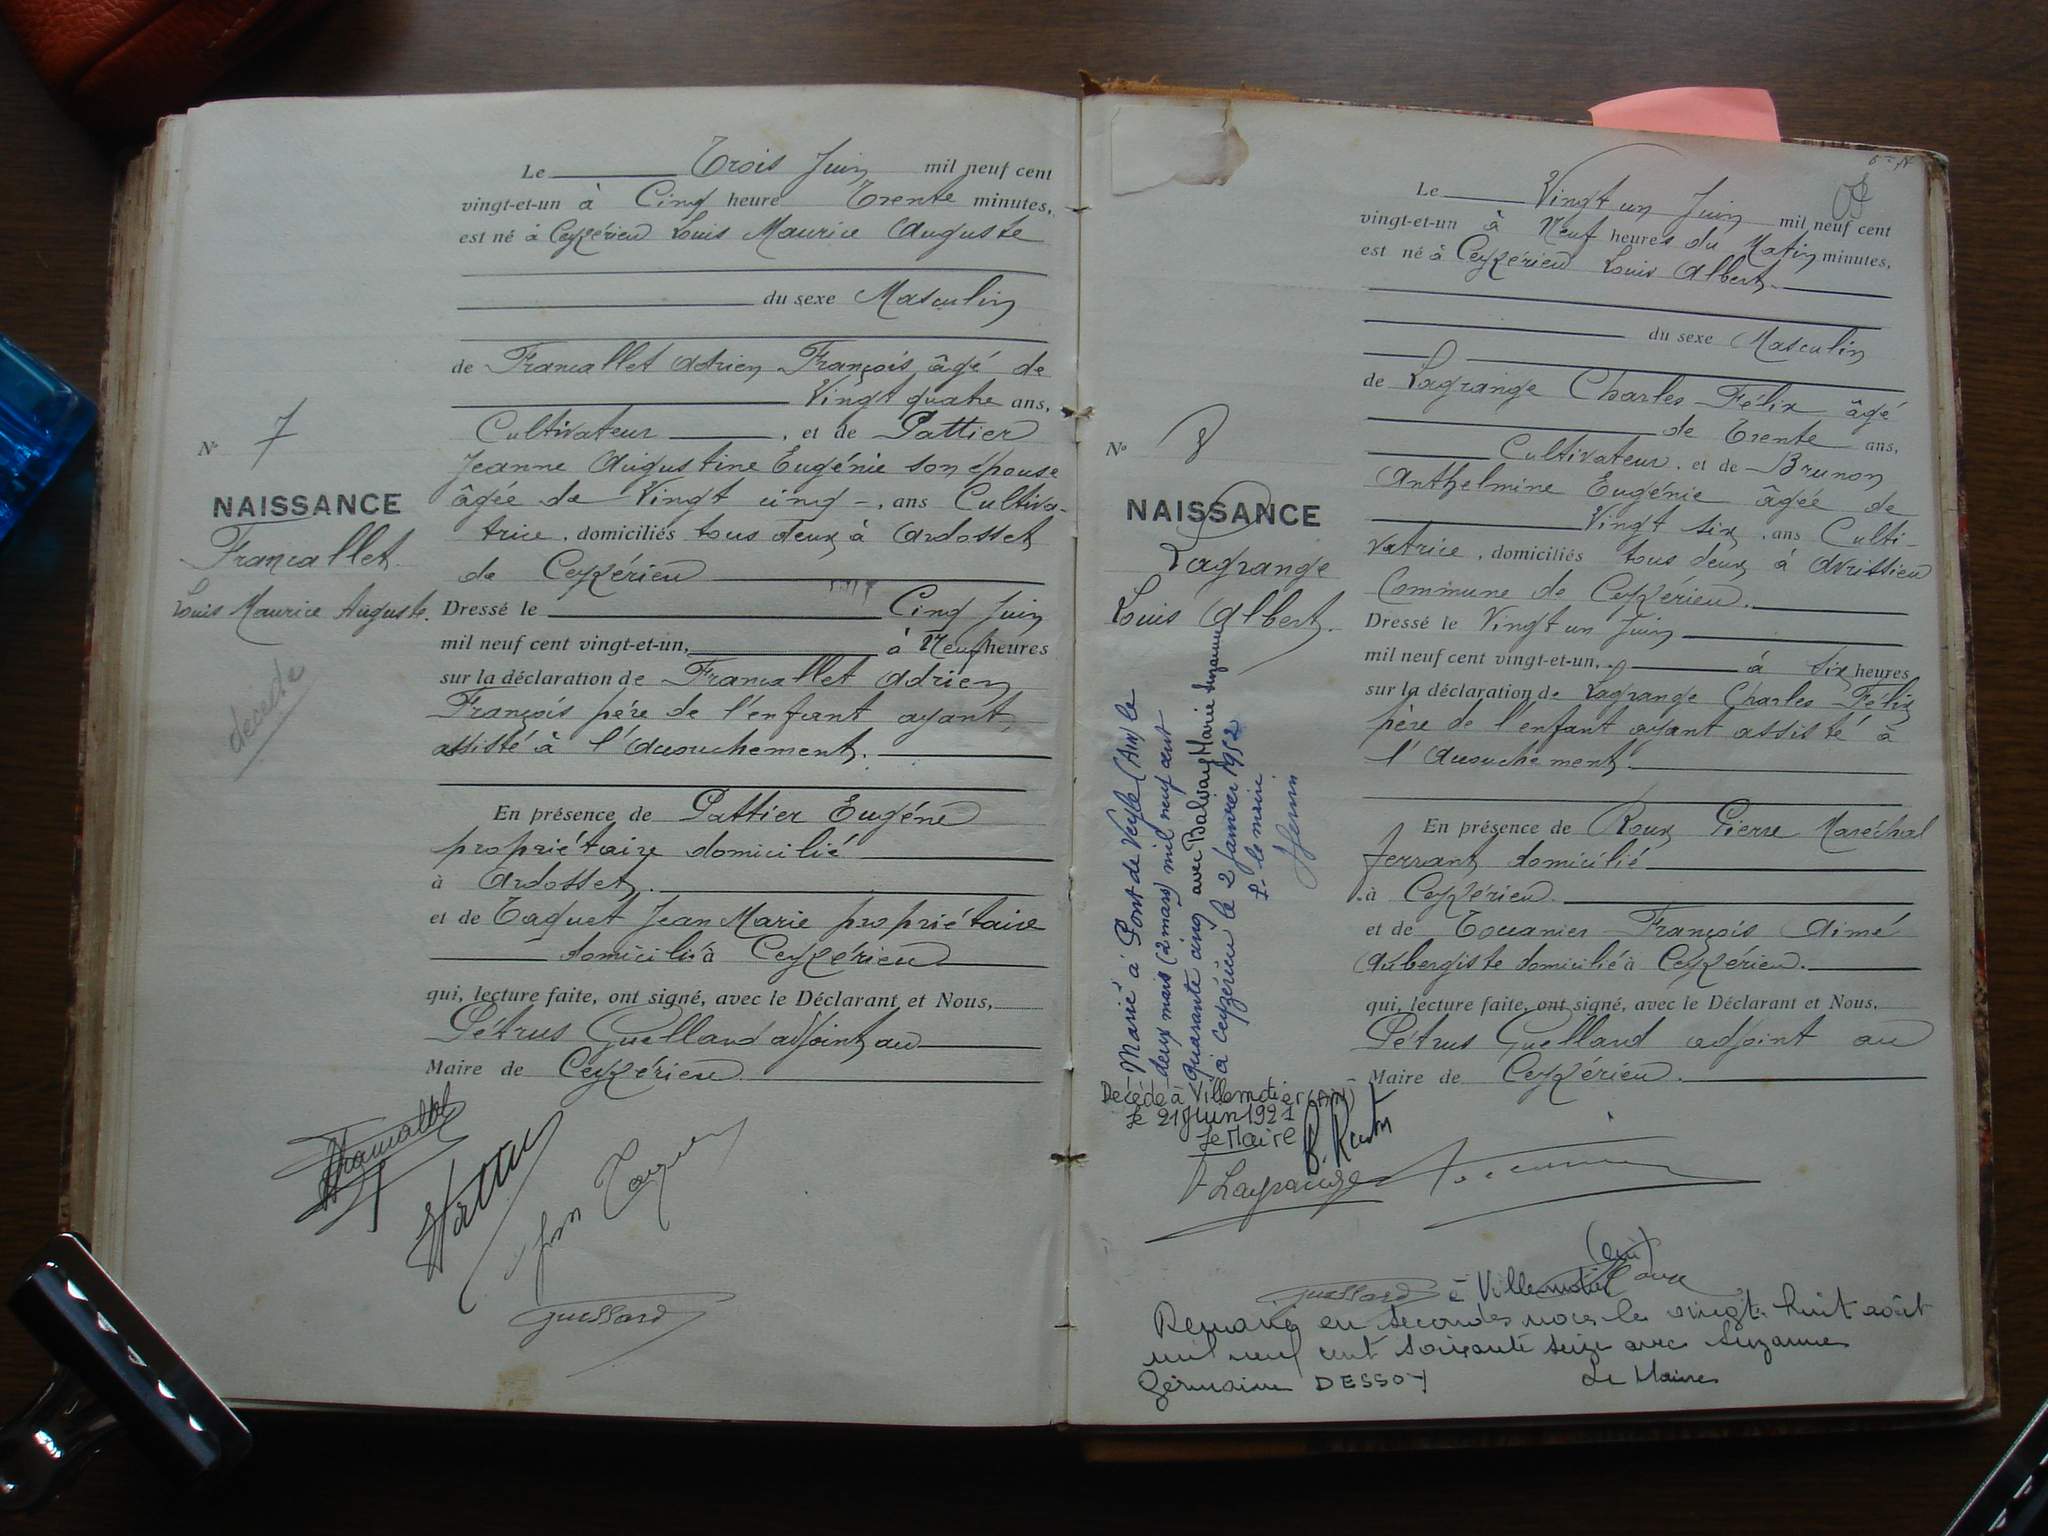 Le Trois Juin mil neuf cent
vingt-et-un à Cinq heure Trente minutes,
est né à Ceyzérieu Louis Maurice Auguste
du sexe Masculin
de Francallet Adrien François âgé de
Vingt quatre ans,
Cultivateur, et de Pattier
Jeanne Augustine Eugénie son épouse
âgée de Vingt cinq, ans Cultiva-
trice, domiciliés tous deux à Ardosset
de Ceyzérieu
Dressé le Cinq Juin
mil neuf cent vingt-et-un, à Neuf heures
sur la déclaration de Francallet Adrien
François père de l'enfant ayant
assisté à l'accouchement.
En présence de Pattier Eugène
propriétaire domicilié
à Ardosset.
et de Taquet Jean Marie propriétaire
domicilié à Ceyzérieu
qui, lecture faite, ont signé, avec le Déclarant et Nous,
Pétrus Guelland adjoint au
Maire de Ceyzérieu
N° 7
NAISSANCE
Francallet
Louis Maurice Auguste.
décédé
Francallet
Le Vingt un Juin mil neuf cent
vingt-et-un à Neuf heures du Matin minutes,
est né à Ceyzérieu Louis Albert
du sexe Masculin
de Lagrange Charles Félix âgé
de Trente ans,
Cultivateur, et de Brunon
Anthelmine Eugénie âgée de
Vingt six, ans Culti-
vatrice, domiciliés tous deux à Avrissieu
Commune de Ceyzérieu.
Dressé le Vingt un Juin
mil neuf cent vingt-et-un, à six heures
sur la déclaration de Lagrange Charles Félix
père de l'enfant ayant assisté à
l'accouchement.
En présence de Roux Pierre Maréchal
ferrant domicilié
à Ceyzérieu.
et de François Aimé
Aubergiste domicilié à Ceyzérieu.
qui, lecture faite, ont signé, avec le Déclarant et Nous,
Pétrus Guelland adjoint au
Maire de Ceyzérieu.
N° 8
NAISSANCE
Lagrange
Louis Albert.
Marié à Pont de Veyle (Ain) le
deux mars (2 mars) mil neuf cent
quarante cinq avec Balvay Marie Suzanne
à Ceyzérieu le 2 Janvier 1952
P. le maire
Décédé à Villemotier (AIN)
le 21 Juin 1991
Le Maire
Lagrange
à Villemotier (Ain)
Remarié en secondes noces le vingt huit août
mil neuf cent soixante seize avec Suzanne
Germaine DESSOY Le Maire